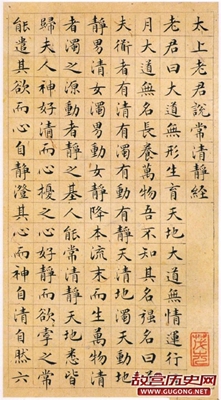 太上老君說常清靜經
老君曰大道無形生育天地大道無情運行日
月大道無名長養萬物吾不知其名強名曰道
夫衜者有清有濁有動有靜天清地濁天動地
靜男清女濁男動女靜降本流末而生萬物清
者濁之源動者靜之基人能常清靜天地悉皆
歸夫人神好清而心擾之人心好靜而欲牽之常
能遣其欲而心自靜澄其心而神自清自然六
故宫历史网